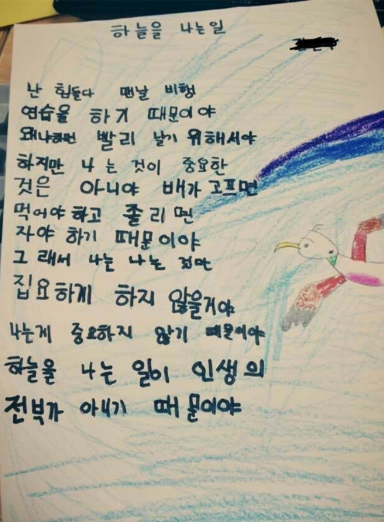 하늘을 나는일
난 힘들다 맨날 비행
연습을 하기 때문이야
왜냐하면 빨리 날기 위해서야
하지만 나는 것이 중요한
것은 아니야 배가 고프면
먹어야 하고 졸리면
자야 하기 때문이야
그래서 나는 나는
집요하게 하지 않을거야
나는게 중요하지 않기 때문이야
하늘을 나는 일이 인생의
전부가 아니기 때문이야